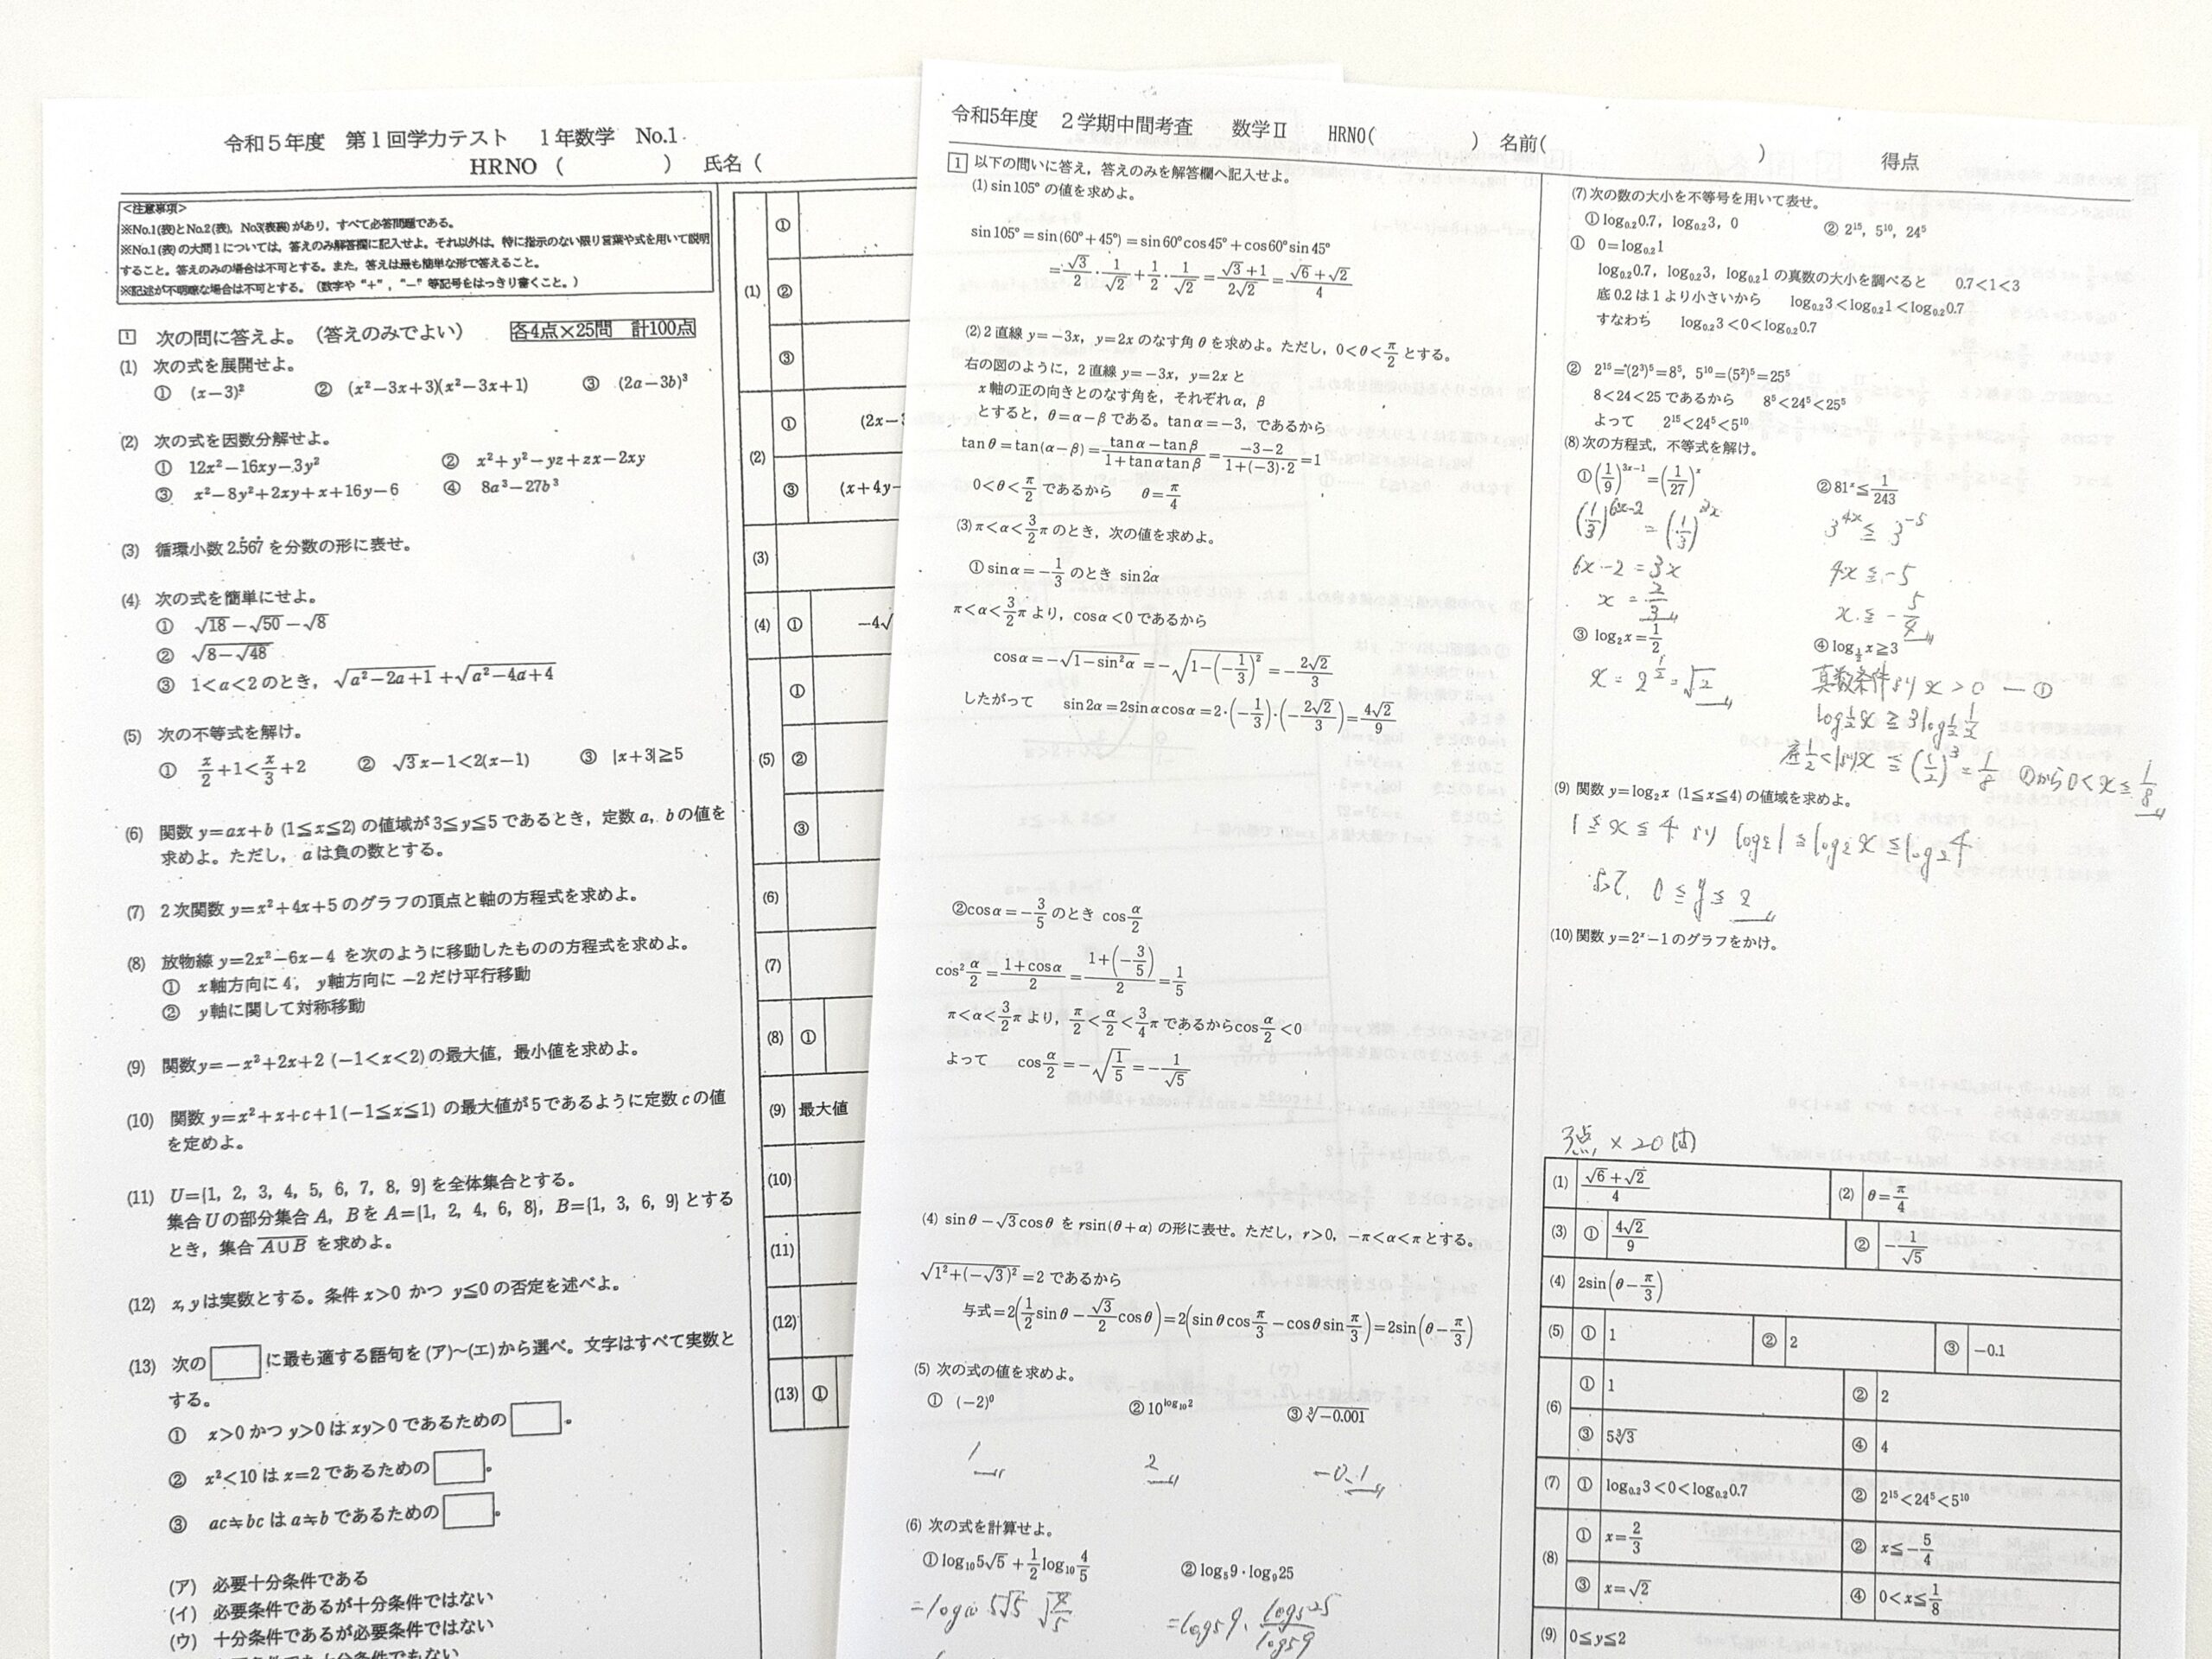 令和5年度　第1回学力テスト　1年数学　No.1
HRNO（　　　　）　氏名（
<注意事項>
※No.1(表)とNo.2(表)，No3(表裏)があり，すべて必答問題である。
※No.1(表)の大問1については，答えのみ解答欄に記入せよ。それ以外は，特に指示のない限り言葉や式を用いて説明
すること。答えのみの場合は不可とする。また，答えは最も簡単な形で答えること。
※記述が不明瞭な場合は不可とする。（数字や“＋”，“－”等記号をはっきり書くこと。）
1　次の問に答えよ。（答えのみでよい）　各4点×25問　計100点
(1)　次の式を展開せよ。
①　(x−3)²　②　(x²−3x+3)(x²−3x+1)　③　(2a−3b)³
(2)　次の式を因数分解せよ。
①　12x²−16xy−3y²　②　x²+y²−yz+zx−2xy
③　x²−8y²+2xy+x+16y−6　④　8a³−27b³
(3)　循環小数 2.5̇67̇ を分数の形に表せ。
(4)　次の式を簡単にせよ。
①　√18−√50−√8
②　√(8−√48)
③　1<a<2のとき，√(a²−2a+1)+√(a²−4a+4)
(5)　次の不等式を解け。
①　x/2+1<x/3+2　②　√3x−1<2(x−1)　③　|x+3|≧5
(6)　関数 y=ax+b (1≦x≦2) の値域が 3≦y≦5 であるとき，定数 a，b の値を
求めよ。ただし，a は負の数とする。
(7)　2次関数 y=x²+4x+5 のグラフの頂点と軸の方程式を求めよ。
(8)　放物線 y=2x²−6x−4 を次のように移動したものの方程式を求めよ。
①　x軸方向に 4，y軸方向に −2 だけ平行移動
②　y軸に関して対称移動
(9)　関数 y=−x²+2x+2 (−1<x<2) の最大値，最小値を求めよ。
(10)　関数 y=x²+x+c+1 (−1≦x≦1) の最大値が 5 であるように定数 c の値
を定めよ。
(11)　U={1, 2, 3, 4, 5, 6, 7, 8, 9} を全体集合とする。
集合 U の部分集合 A，B を A={1, 2, 4, 6, 8}，B={1, 3, 6, 9} とする
とき，集合 A̅∪̅B̅ を求めよ。
(12)　x, y は実数とする。条件 x>0 かつ y≦0 の否定を述べよ。
(13)　次の□に最も適する語句を(ア)～(エ)から選べ。文字はすべて実数と
する。
①　x>0 かつ y>0 は xy>0 であるための□。
②　x²<10 は x=2 であるための□。
③　ac≒bc は a≒b であるための□。
(ア)　必要十分条件である
(イ)　必要条件であるが十分条件ではない
(ウ)　十分条件であるが必要条件ではない
(1)　①
②
③
(2)　①　(2x−
③　(x+4y−
(3)
(4)　①　−4√
(5)　①
②
③
(6)
(7)
(8)　①
(9)　最大値
(10)
(11)
(12)
(13)　①
令和5年度　2学期中間考査　数学Ⅱ　HRNO(　　　　)　名前(　　　　　　)　得点
1　以下の問いに答え，答えのみを解答欄へ記入せよ。
(1) sin105° の値を求めよ。
sin105°=sin(60°+45°)=sin60°cos45°+cos60°sin45°
=√3/2・1/√2+1/2・1/√2=(√3+1)/(2√2)=(√6+√2)/4
(2) 2直線 y=−3x，y=2x のなす角 θ を求めよ。ただし，0<θ<π/2 とする。
右の図のように，2直線 y=−3x，y=2x と
x軸の正の向きとのなす角を，それぞれ α，β
とすると，θ=α−β である。tanα=−3，であるから
tanθ=tan(α−β)=(tanα−tanβ)/(1+tanαtanβ)=(−3−2)/(1+(−3)・2)=1
0<θ<π/2 であるから　θ=π/4
(3) π<α<3/2π のとき，次の値を求めよ。
① sinα=−1/3 のとき sin2α
π<α<3/2π より，cosα<0 であるから
cosα=−√(1−sin²α)=−√(1−(−1/3)²)=−2√2/3
したがって　sin2α=2sinαcosα=2・(−1/3)・(−2√2/3)=4√2/9
②cosα=−3/5 のとき cos α/2
cos² α/2=(1+cosα)/2=(1+(−3/5))/2=1/5
π<α<3/2π より，π/2<α/2<3/4π であるからcos α/2<0
よって　cos α/2=−√(1/5)=−1/√5
(4) sinθ−√3cosθ を rsin(θ+α) の形に表せ。ただし，r>0，−π<α<π とする。
√(1²+(−√3)²)=2 であるから
与式=2(1/2 sinθ−√3/2 cosθ)=2(sinθcos π/3−cosθsin π/3)=2sin(θ−π/3)
(5) 次の式の値を求めよ。
① (−2)⁰　②10^(log₁₀2)　③∛−0.001
1　2　−0.1
(6) 次の式を計算せよ。
①log₁₀5√5+1/2 log₁₀4/5　②log₅9・log₉25
=log₁₀ 5√5 √(4/5)　=log₅9・log₅25/log₅9
(7) 次の数の大小を不等号を用いて表せ。
①log₀.₂0.7，log₀.₂3，0　② 2¹⁵，5¹⁰，24⁵
①　0=log₀.₂1
log₀.₂0.7，log₀.₂3，log₀.₂1 の真数の大小を調べると　0.7<1<3
底 0.2 は 1 より小さいから　log₀.₂3<log₀.₂1<log₀.₂0.7
すなわち　log₀.₂3<0<log₀.₂0.7
②　2¹⁵=(2³)⁵=8⁵，5¹⁰=(5²)⁵=25⁵
8<24<25 であるから　8⁵<24⁵<25⁵
よって　2¹⁵<24⁵<5¹⁰
(8) 次の方程式，不等式を解け。
①(1/9)^(3x−1)=(1/27)^x　②81^x≦1/243
(1/3)^(6x−2)=(1/3)^(3x)　3^(4x)≦3^(−5)
6x−2=3x　4x≦−5
x=2/3　x≦−5/4
③ log₂x=1/2　④log_(1/2) x≧3
x=2^(1/2)=√2　真数条件より x>0 ―①
log_(1/2) x≧3log_(1/2) 1/2
底1/2<1よりx≦(1/2)³=1/8　①から0<x≦1/8
(9) 関数 y=log₂x (1≦x≦4) の値域を求めよ。
1≦x≦4 より log₂1≦log₂x≦log₂4
よって，0≦y≦2
(10) 関数 y=2^x−1 のグラフをかけ。
3点×20問
(1)　(√6+√2)/4　(2)　θ=π/4
(3)　①　4√2/9　②　−1/√5
(4)　2sin(θ−π/3)
(5)　①　1　②　2　③　−0.1
(6)　①　1　②　2
③　5∛3　④　4
(7)　①　log₀.₂3<0<log₀.₂0.7　②　2¹⁵<24⁵<5¹⁰
(8)　①　x=2/3　②　x≦−5/4
③　x=√2　④　0<x≦1/8
(9)　0≦y≦2